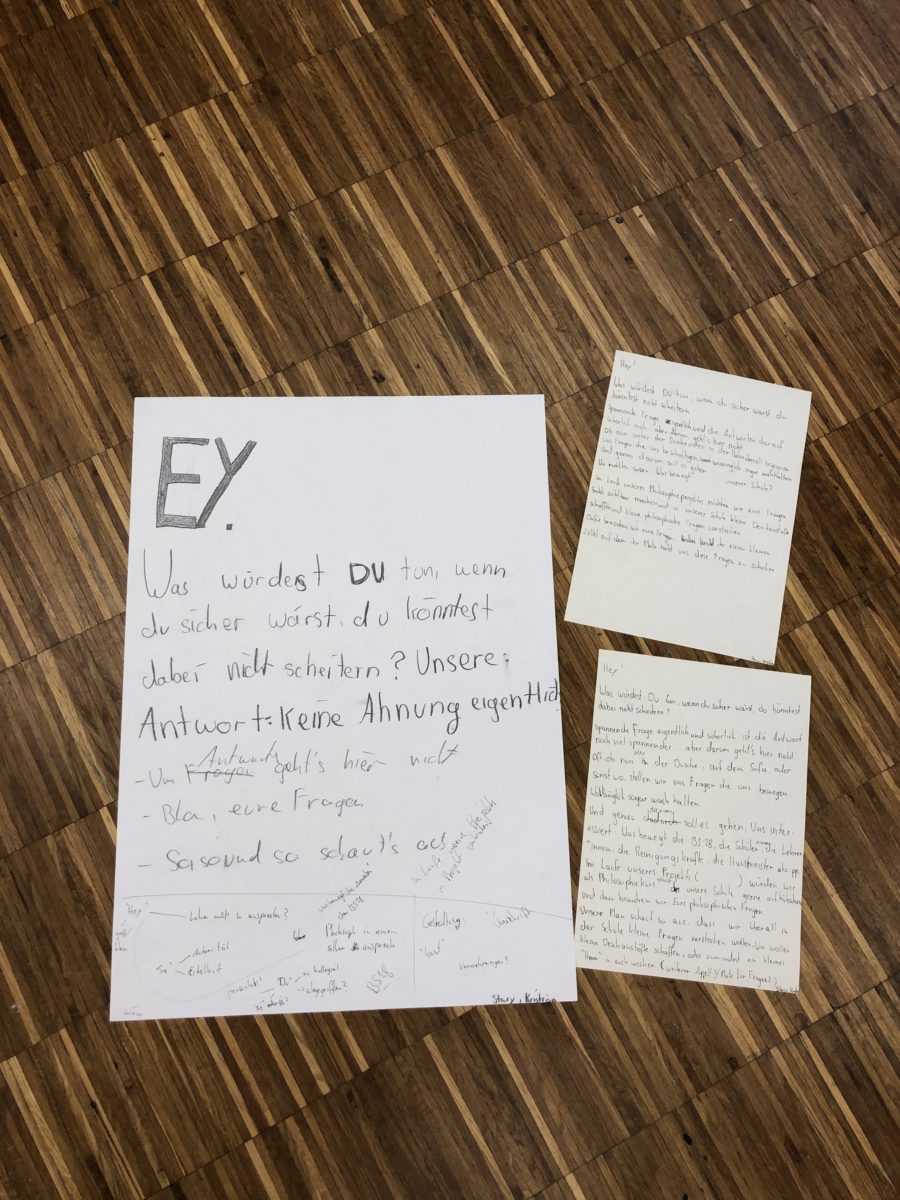 EY.
Was würdest DU tun, wenn
du sicher wärst, du könntest
dabei nicht scheitern? Unsere
Antwort: Keine Ahnung eigentlich
Antwort
- Um Fragen geht's hier nicht
- Bla, eure Fragen
- So so und so schaut's aus
"Hey"
Lehrer
"Sie"
Autorität
Eitelkeit
"Du"
zu kollegial
abgegriffen?
Philosoph in einem
selber ansprechen
BS18
Gestaltung:
Überschrift
"bunt"
Verneinungen?
Hey!
Was würdest Du tun, wenn du sicher wärst, du
könntest nicht scheitern
spannende Frage eigentlich und die Antworten darauf
sicherlich auch, aber darum geht's hier nicht
Ob nun unter der Dusche oder in der Bahn überall begegnen
uns Fragen die uns beschäftigen, womöglich sogar wachhalten
Und genau darum soll es gehen
Wir möchten wissen: Was bewegt unserer Schule?
Im Laufe unseres Philosophieprojektes möchten wir eure Fragen
sichtbar machen und in unserer Schule kleine Denkanstöße
schaffen und kleine philosophische Fragen verstecken
Dafür brauchen wir eure Fragen. ihr einen kleinen
Zettel auf dem ihr Platz habt uns diese Fragen zu schicken
Hey!
Was würdest Du tun, wenn du sicher wärst, du könntest
dabei nicht scheitern?
Spannende Frage eigentlich und sicherlich ist die Antwort
noch viel spannender... aber darum geht's hier nicht.
Oft, ob nun in der Dusche, auf dem Sofa oder
sonst wo, stellen wir uns Fragen die uns bewegen
Womöglich sogar wach halten.
Und genau darum soll es gehen. Uns inter-
essiert: Was bewegt die BS18, die Schüler*innen, die Lehrer*
innen, die Reinigungskräfte, die Hausmeister etc pp
Im Laufe unseres Projekts ( ) würden wir
als Philosophiekurs unsere Schule gerne aufhübschen
und dazu brauchen wir Eure philosophischen Fragen
Unsere Plan schaut so aus, dass wir überall in
der Schule kleine Fragen verstecken wollen. Wir wollen
kleine Denkanstöße schaffen, oder zumindest ein kleines
"Hmm" in euch wecken. (weiterer Appell / Platz für Fragen?)